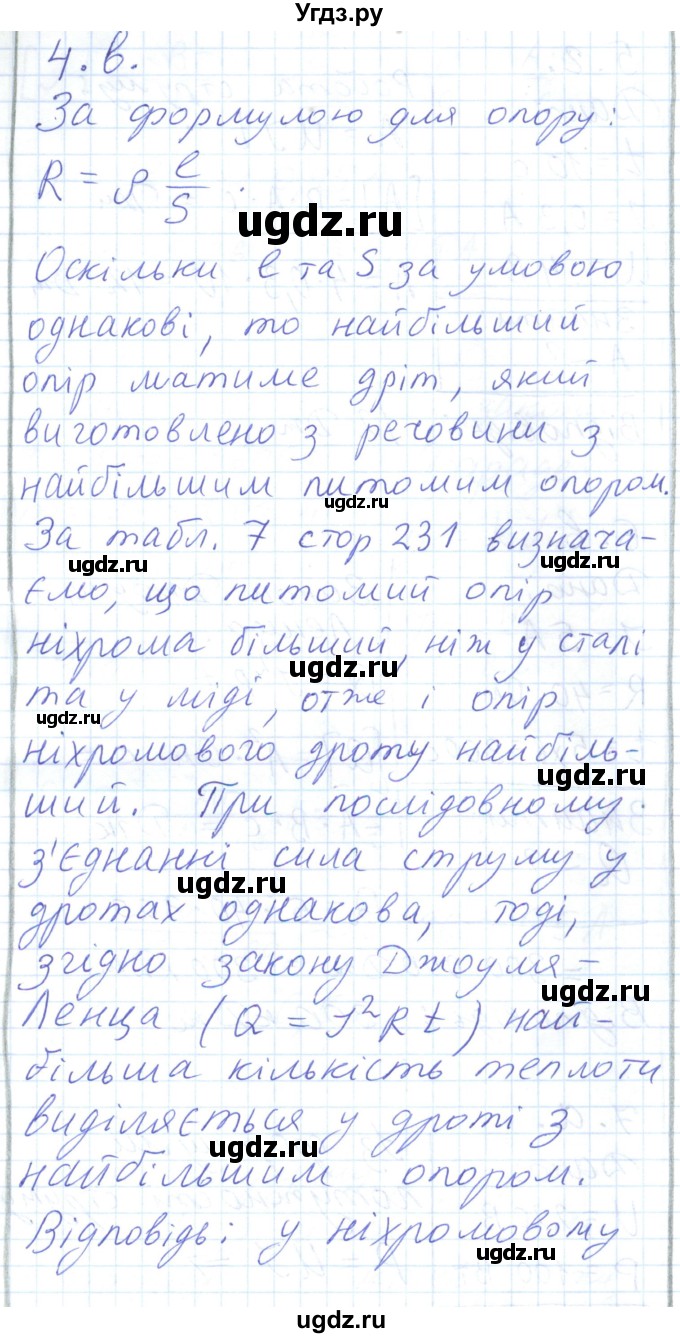 Угдз.ру
4.в.
За формулою для опору:
R = ρ l/S .
ugdz.ru
Оскільки l та S за умовою
однакові, то найбільший
опір матиме дріт, який
виготовлено з речовини з
найбільшим питомим опором.
ugdz.ru
За табл. 7 стор 231 визнача-
ugdz.ru ugdz.ru
ємо, що питомий опір
ніхрома більший, ніж у сталі
ugdz.ru
та у міді, отже і опір
ugdz.ru
ніхромового дроту найбіль-
ugdz.ru
ший. При послідовному
з'єднанні сила струму у
ugdz.ru
дротах однакова, тоді,
згідно закону Джоуля-
ugdz.ru
Ленца (Q = J²Rt) най-
більша кількість теплоти
виділяється у дроті з
ugdz.ru
найбільшим опором.
Відповідь: у ніхромовому
ugdz.ru
ugdz.ru